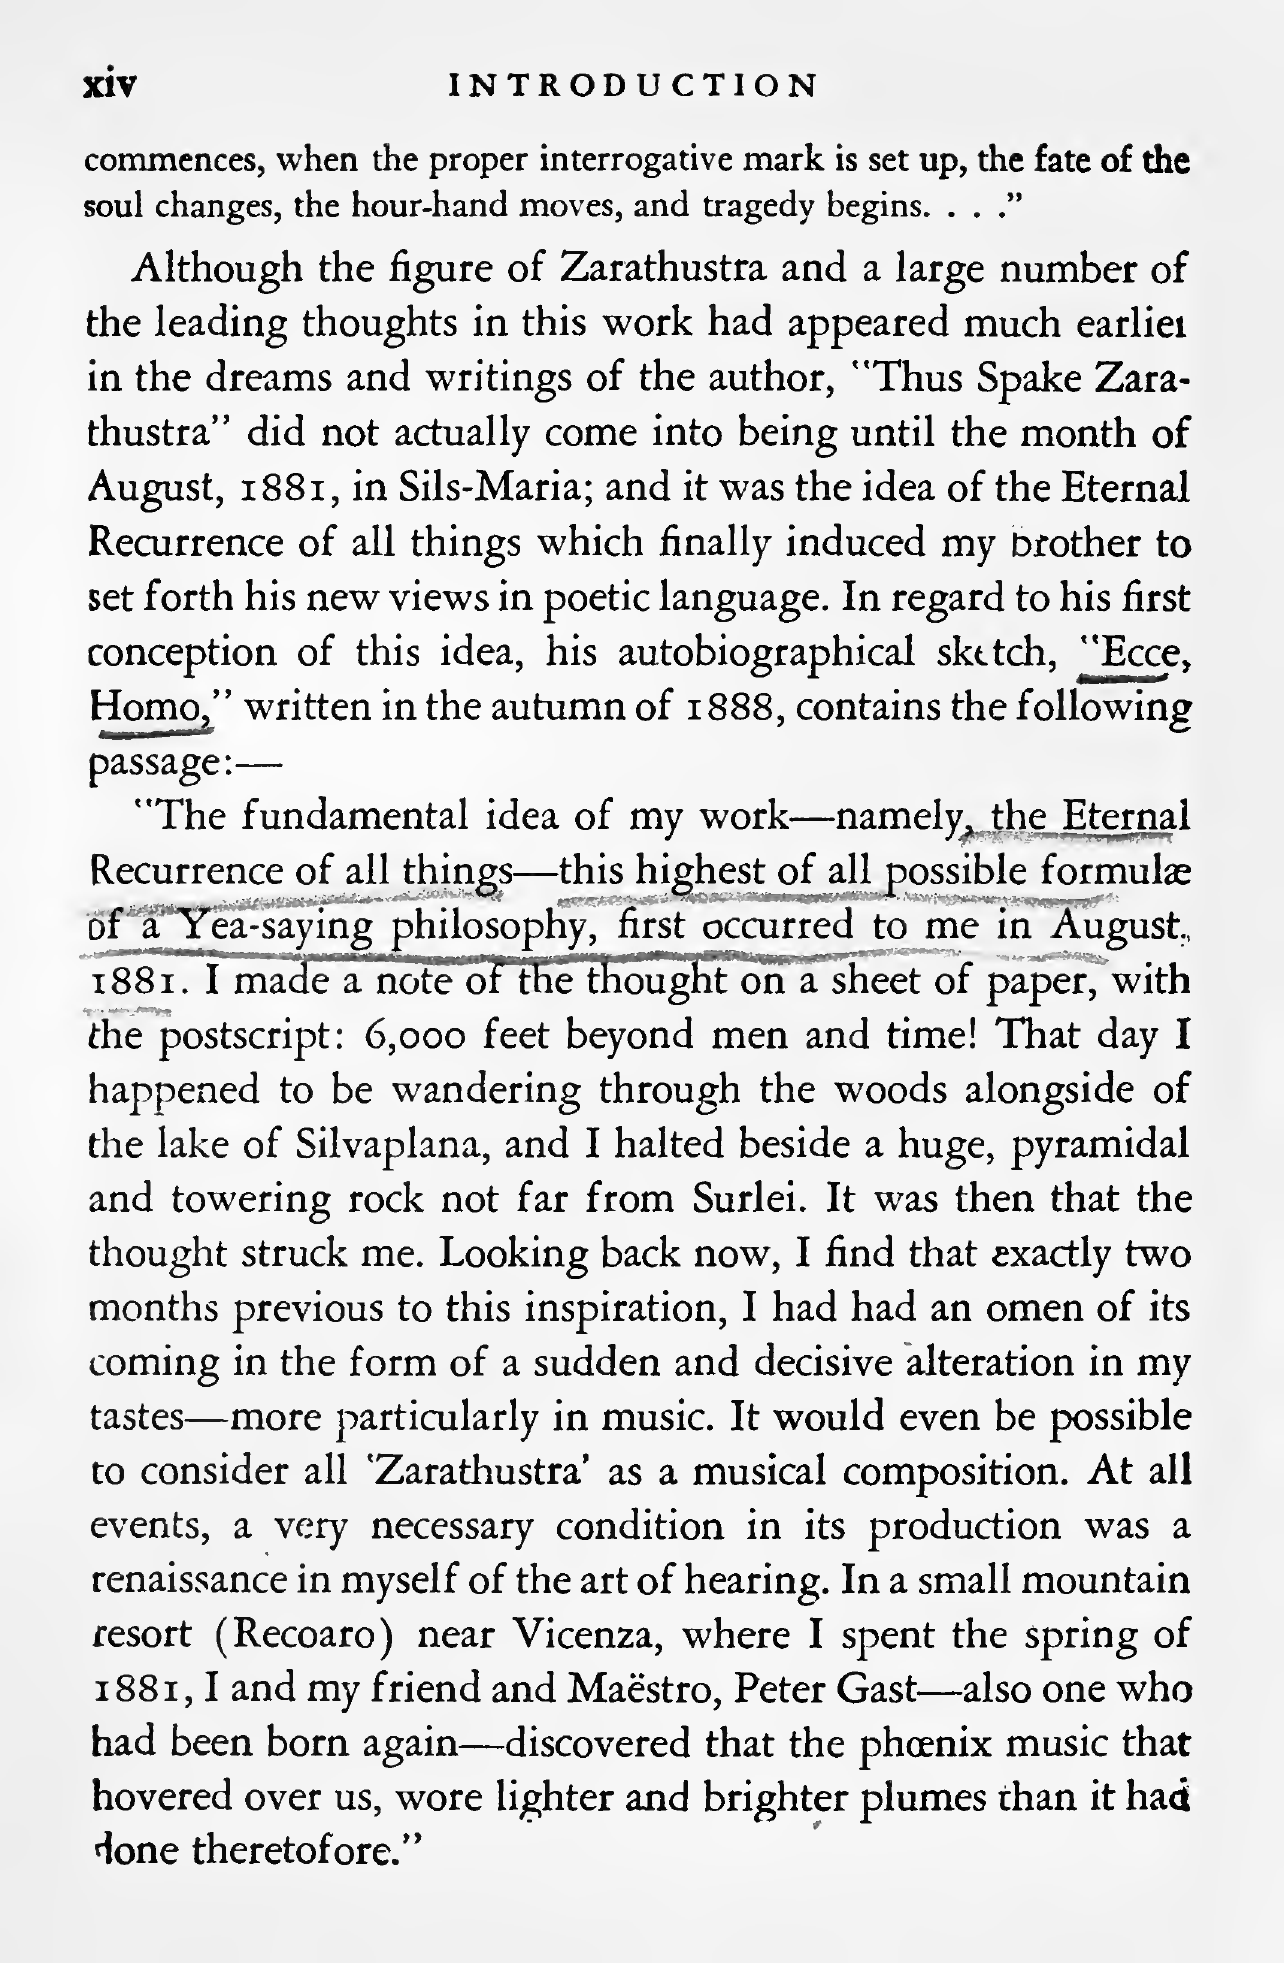 xiv INTRODUCTION
commences, when the proper interrogative mark is set up, the fate of the
soul changes, the hour-hand moves, and tragedy begins. . . ."
Although the figure of Zarathustra and a large number of
the leading thoughts in this work had appeared much earlier
in the dreams and writings of the author, "Thus Spake Zara-
thustra" did not actually come into being until the month of
August, 1881, in Sils-Maria; and it was the idea of the Eternal
Recurrence of all things which finally induced my brother to
set forth his new views in poetic language. In regard to his first
conception of this idea, his autobiographical sketch, "Ecce,
Homo," written in the autumn of 1888, contains the following
passage:—
"The fundamental idea of my work—namely, the Eternal
Recurrence of all things—this highest of all possible formulæ
of a Yea-saying philosophy, first occurred to me in August,
1881. I made a note of the thought on a sheet of paper, with
the postscript: 6,000 feet beyond men and time! That day I
happened to be wandering through the woods alongside of
the lake of Silvaplana, and I halted beside a huge, pyramidal
and towering rock not far from Surlei. It was then that the
thought struck me. Looking back now, I find that exactly two
months previous to this inspiration, I had had an omen of its
coming in the form of a sudden and decisive alteration in my
tastes—more particularly in music. It would even be possible
to consider all 'Zarathustra' as a musical composition. At all
events, a very necessary condition in its production was a
renaissance in myself of the art of hearing. In a small mountain
resort (Recoaro) near Vicenza, where I spent the spring of
1881, I and my friend and Maëstro, Peter Gast—also one who
had been born again—discovered that the phœnix music that
hovered over us, wore lighter and brighter plumes than it had
done theretofore."